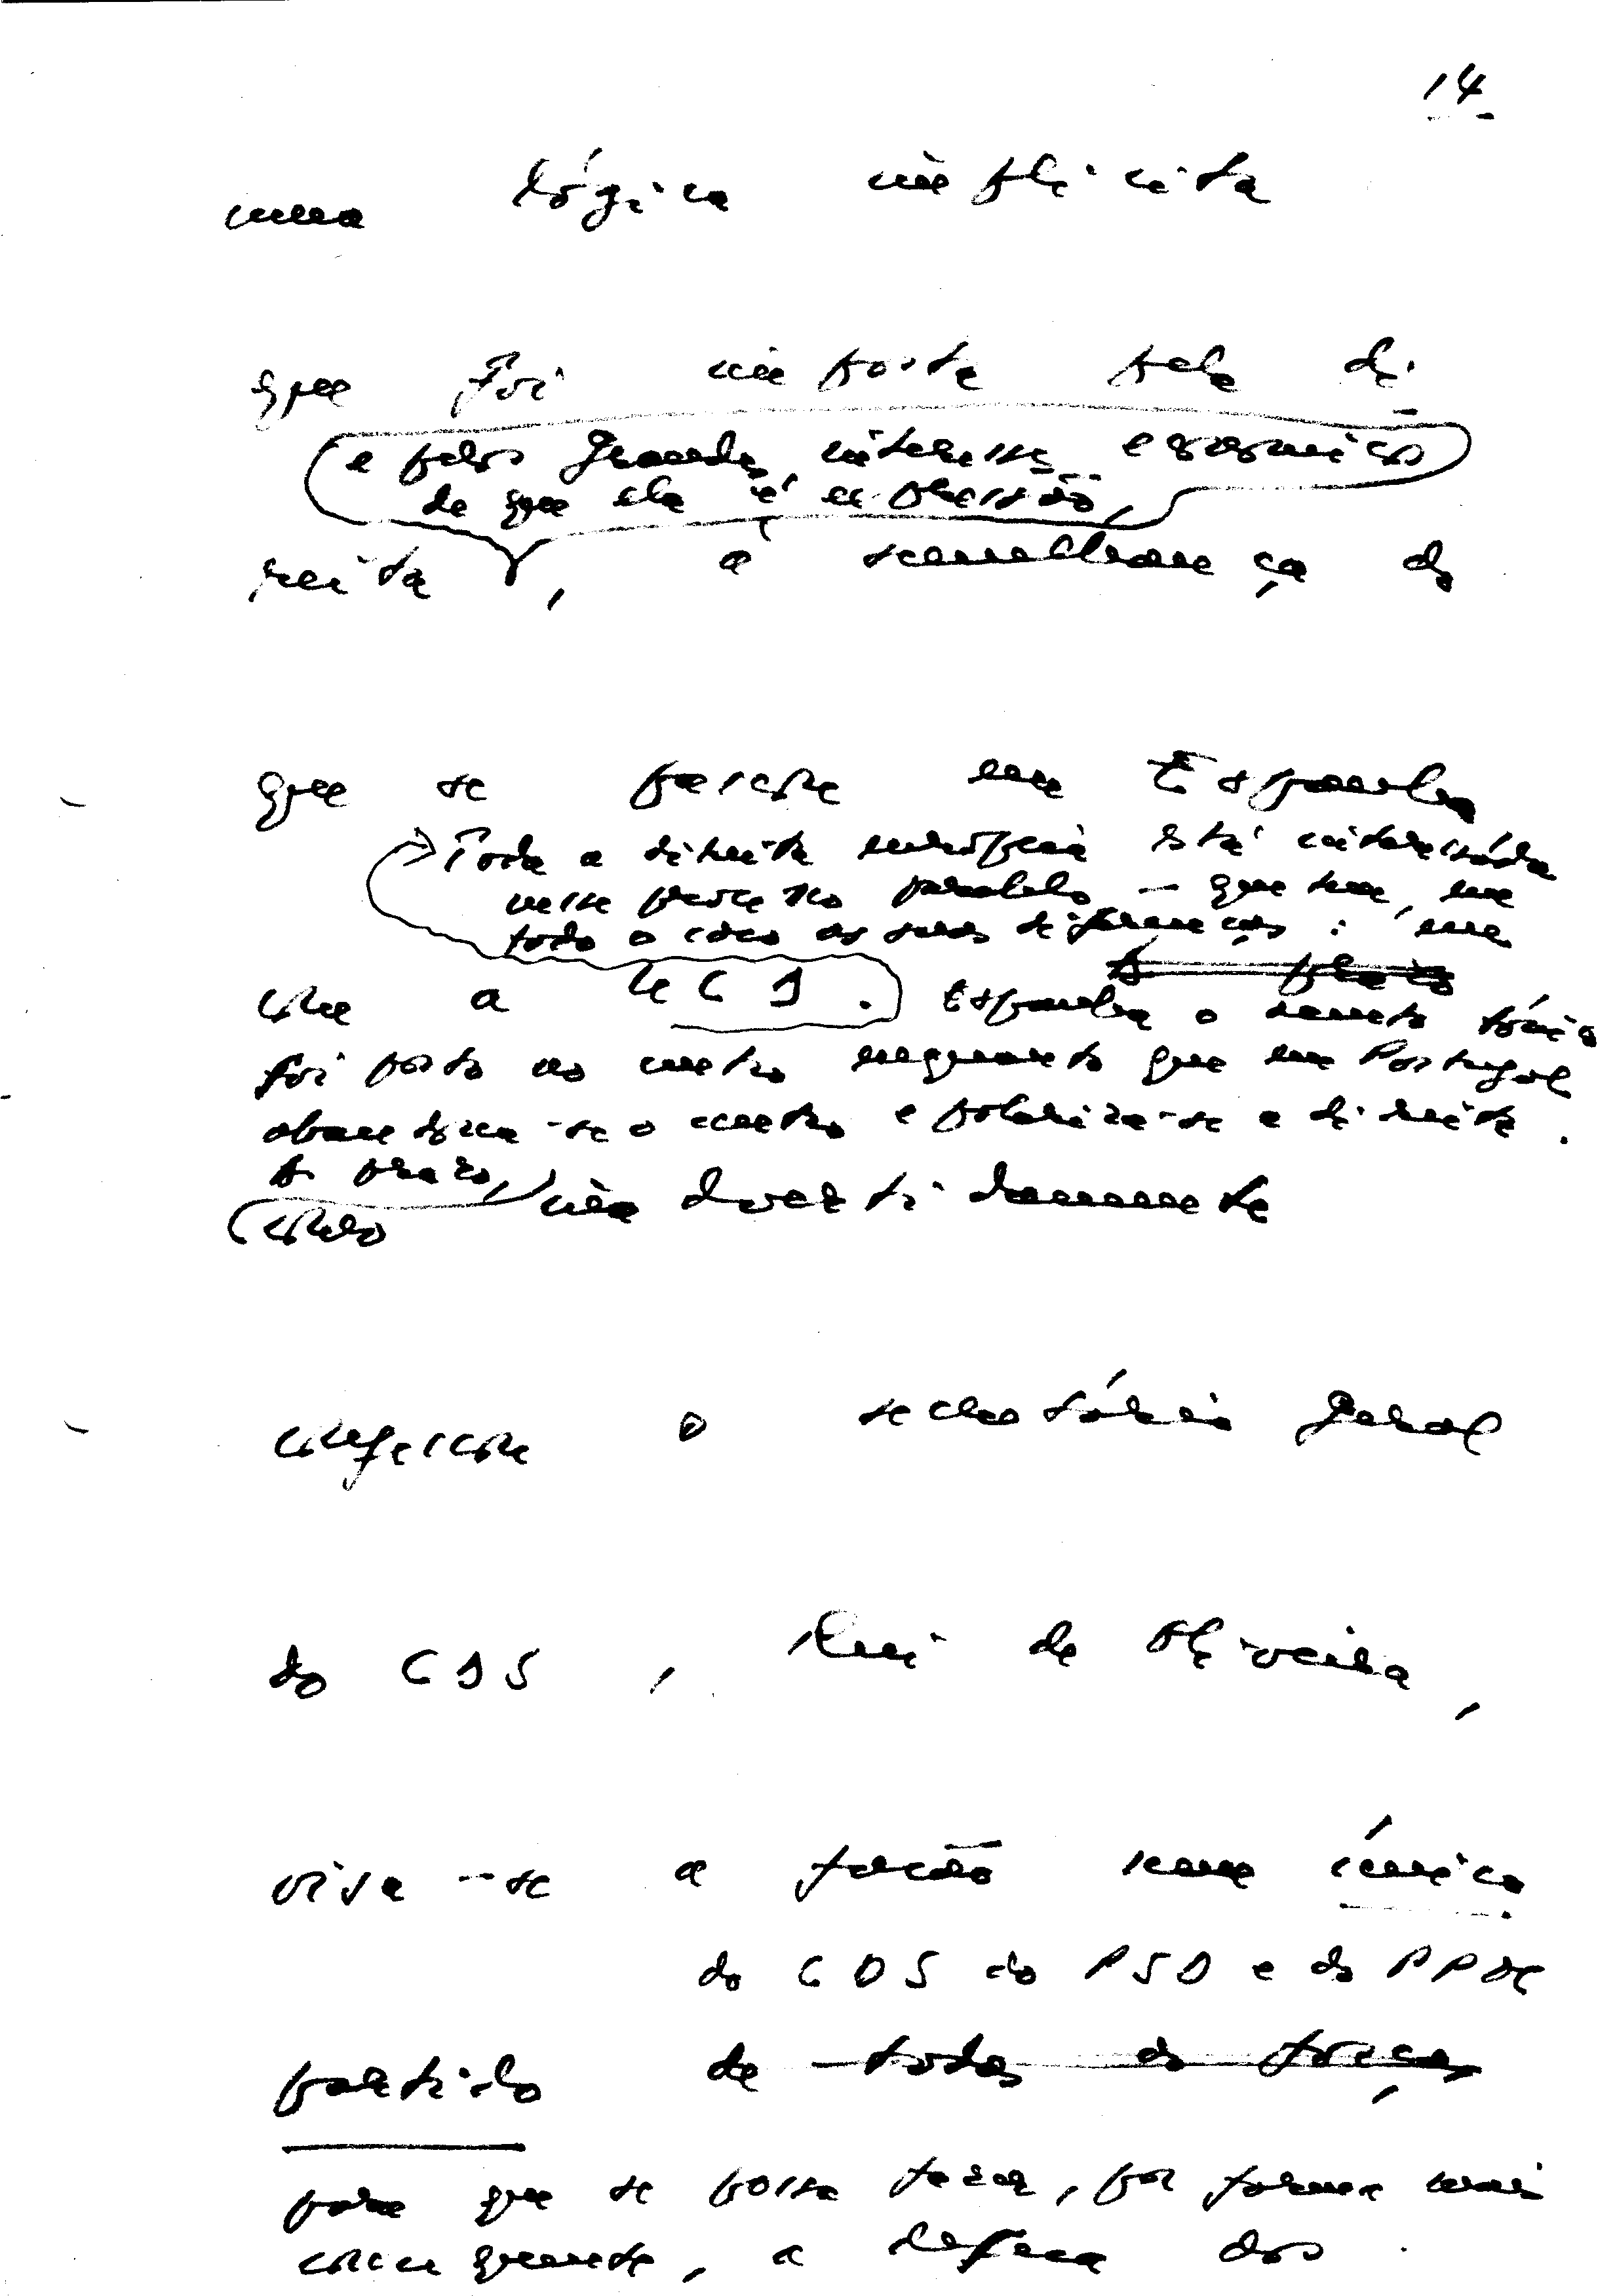 14
uma lógica implícita
que foi imposta pela di-
e pelos grandes interesses económicos
de que ela é expressão,
reita, à semelhança do
que se passou em Espanha
Toda a direita europeia está interessada
nesse processo paralelo — que tem, em
todo o caso as suas diferenças: em
com a UCD. A prazo
Espanha o acento tónico
foi posto no centro enquanto que em Portugal
abandona-se o centro e polariza-se a direita.
A prazo,
como inadvertidamente
confessou o secretário geral
do CDS, Rui de Oliveira,
visa-se a fusão num único
do CDS do PSD e do PPM
partido de todas as forças
para que se possa fazer, por forma mais
consequente, a defesa dos